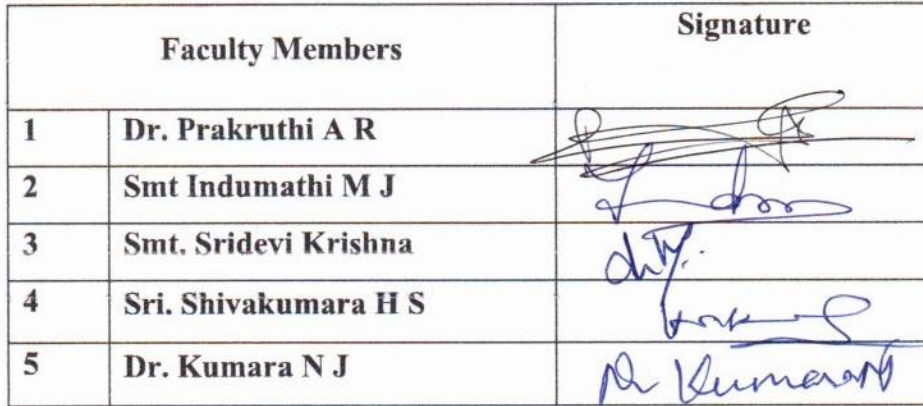 Faculty Members Signature
1 Dr. Prakruthi A R
2 Smt Indumathi M J
3 Smt. Sridevi Krishna
4 Sri. Shivakumara H S
5 Dr. Kumara N J Dr Kumara N J